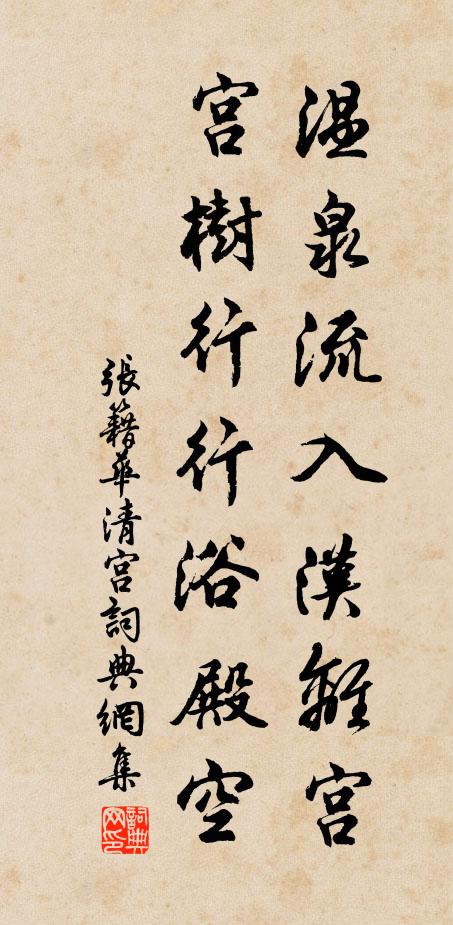 温泉流入漢離宮
宮樹行行浴殿空
張籍華清宮詞典網集
詞典網印